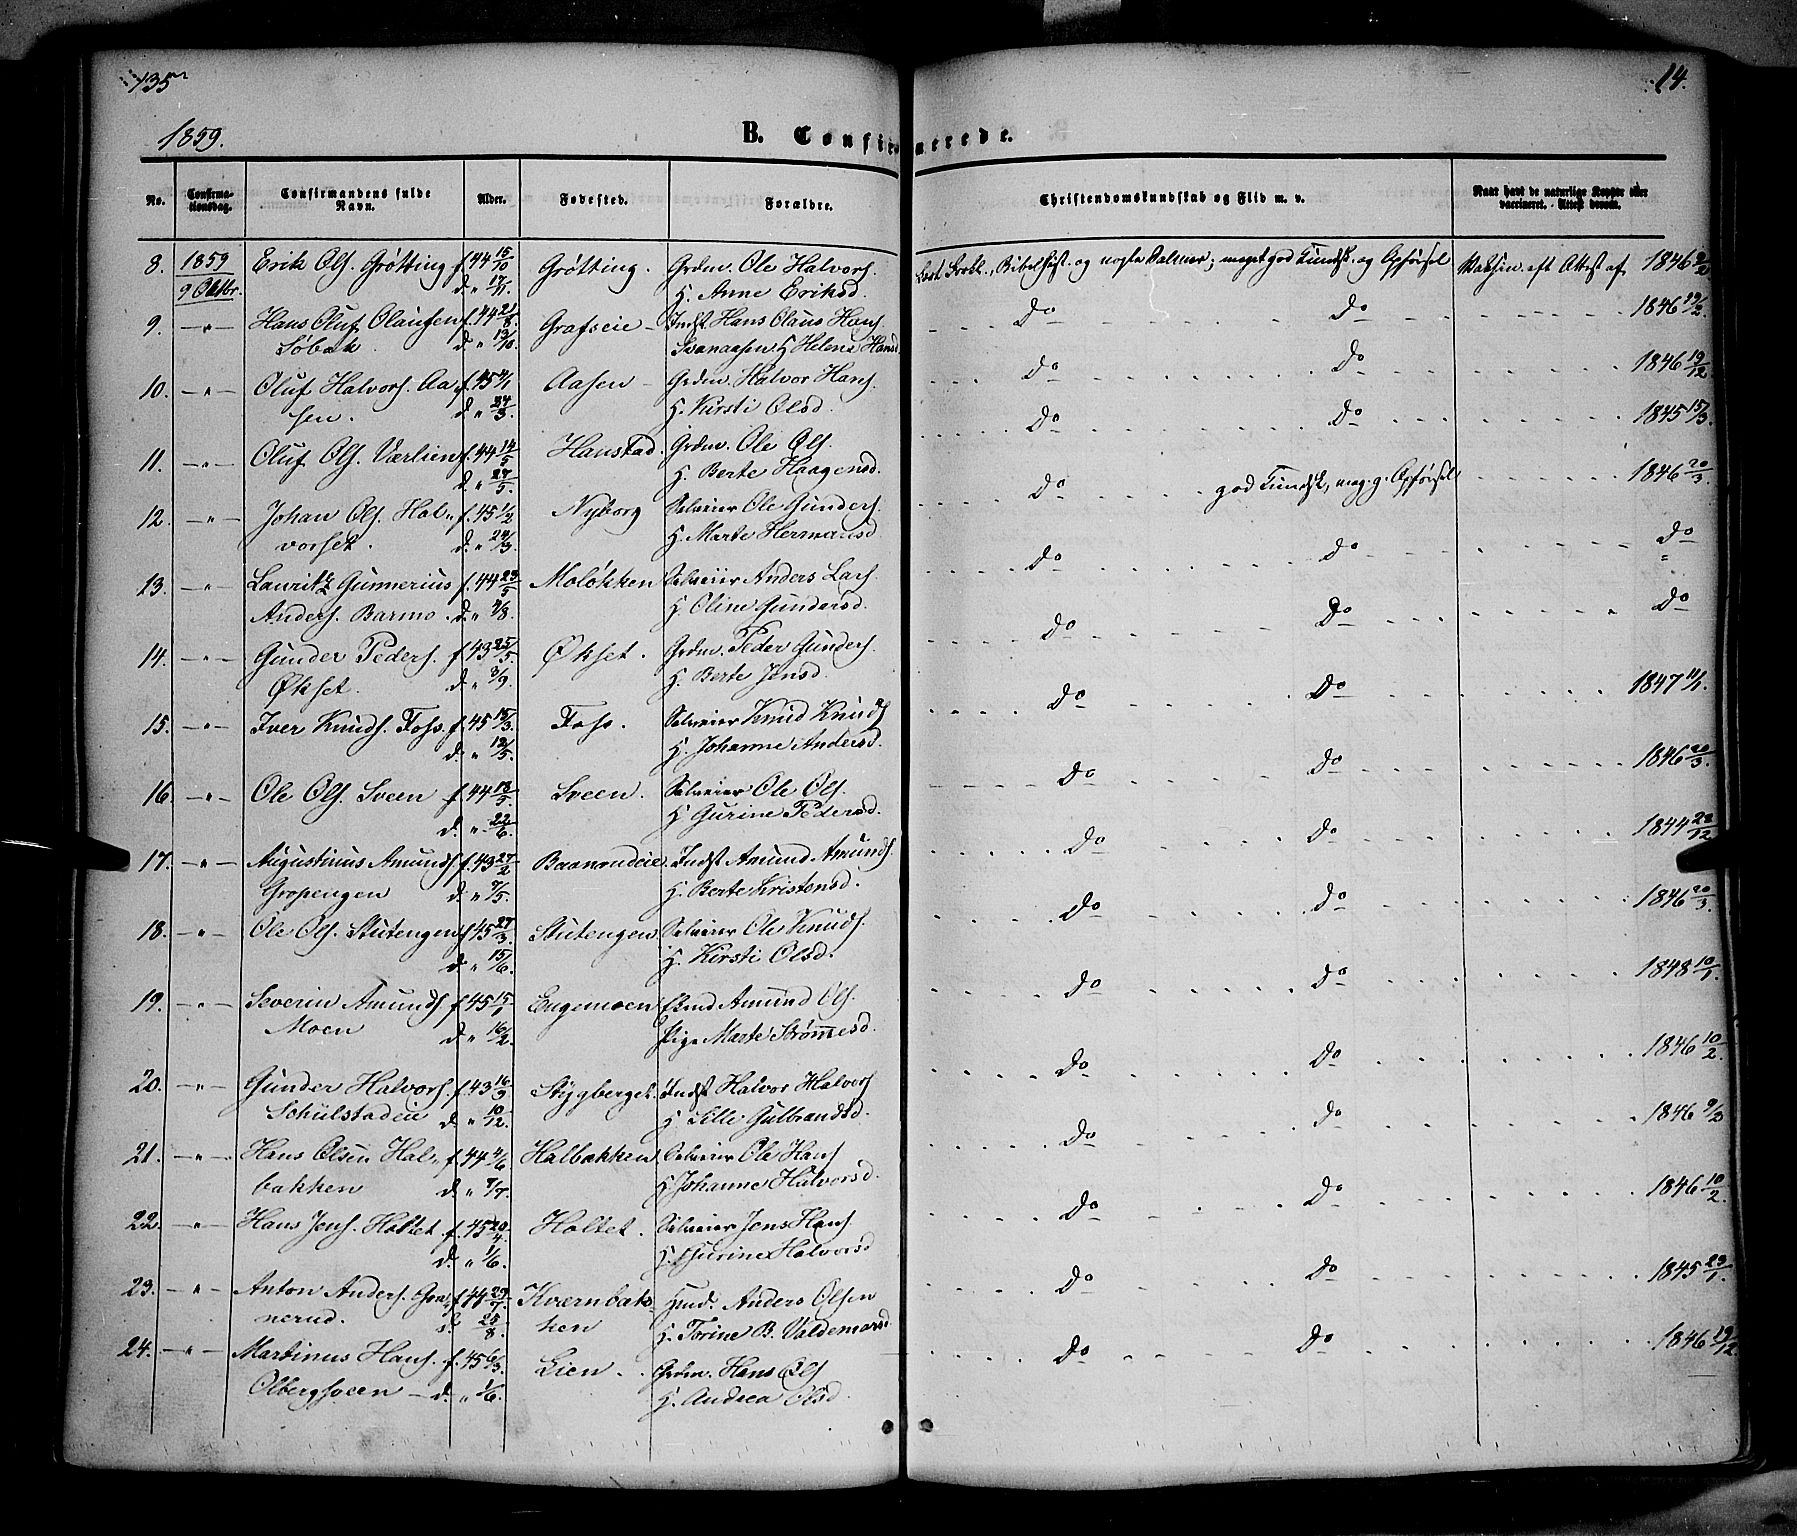 135
14.
1859.
B. Confirmerede.
No.
Confirma-
tionsdag.
Confirmandens fulde
Navn.
Alder.
Fødested.
Forældre.
Christendomskundskab og Flid m. v.
Naar havt de naturlige Kopper eller
vaccineret. - Attest derom.
8. 1859 Erik Ols. Grötting f. 44 15/10 Grötting. Grdm. Ole Halvors. Bibelhist. og nogle Salmer; meget god Kundsk. og Opførsel Vaksin. eft Attest af 1846 2/2
9 Oktbr. d. " 17/11. H. Anne Eriksd.
9. -"- Hans Oluf Olausen f. 44 21/8. Grafseie - Indst Hans Olaus Hans. Do Do 1846 19/2.
Løbak. d. " 13/10. Svenaasen H Helene Hansd
10. -"- Oluf Halvors. Aa f. 45 4/1 Aasen - Grdm. Halvor Hans. Do Do 1846 19/12
sen. d. " 24/3. H. Kirsti Olsd.
11. -"- Oluf Ols. Værlien f. 44 14/5 Hanstad. Grdm. Ole Ols. Do Do 1845 15/3.
d. " 27/5. H. Berte Haagensd.
12. -"- Johan Ols. Hal- f. 45 1/2 Nyborg Selveier Ole Gunders. Do god Kundsk, meg. g. Opførsel 1846 20/3.
vorset. d. " 24/3. H. Marte Hermansd
13. -"- Lauritz Gunnerius f. 44 23/5 Moløkken Selveiier Anders Lars. Do Do Do
Anders. Barmo. d. " 4/8. H. Oline Gundersd.
14. -"- Gunder Peders. f. 43 25/5. Økset. Grdm. Peder Gunders. Do Do Do
Økset. d. " 3/9. H. Berte Jensd.
15. -"- Iver Knuds. Foss. f. 45 15/3. Foss. Selveier Knud Knuds Do Do 1847 11/1.
d. " 12/5. H. Johanne Andersd.
16. -"- Ole Ols. Sveen f. 44 13/5. Sveen. Selveier Ole Ols. Do Do 1846 20/3.
d. " 22/6. H Gurine Pedersd.
17. -"- Augustinus Amunds. f. 43 27/2 Baanrudeie Indst Amund Amunds. Do Do 1844 28/12
Gropengen d. " 7/5. H. Berte Kristensd.
18. -"- Ole Ols. Stutengen f. 45 27/3. Stutengen. Selveier Ole Knuds. Do Do 1846 20/3.
d. " 15/6. H. Kirsti Olsd.
19. -"- Severin Amunds f. 45 15/1 Engemoen Amund Ols. Do Do 1848 10/1.
Moen d. " 16/2. Pige Marte Strømmesd.
20. -"- Gunder Halvors. f. 43 16/3 Stygberget. Indst Halvor Halvors Do Do 1846 10/2.
Schulstadeie d. " 10/12. H Sille Gulbrandsd.
21. -"- Hans Olsen Hal- f. 44 4/6 Halbakken Selveier Ole Hans Do Do 1846 9/2
bakken d. " 7/7. H Johanne Halvorsd.
22. -"- Hans Jens. Holtet f. 45 20/4 Holtet. Selveier Jens Hans Do Do 1846 10/2.
d. " 1/6. H. Gurine Halvorsd
23. -"- Anton Anders. Gun f. 44 29/7. Kværnbak- Huusd. Anders Olsen Do Do 1845 23/1.
nerud. d. 25/8. ken H. Torine B. Valdemarsd.
24. -"- Martinus Hans. f. 45 6/3. Lien. Grdm. Hans Ols Do Do 1846 19/12
Olbergsveen - d. " 1/6. H. Andrea Olsd.